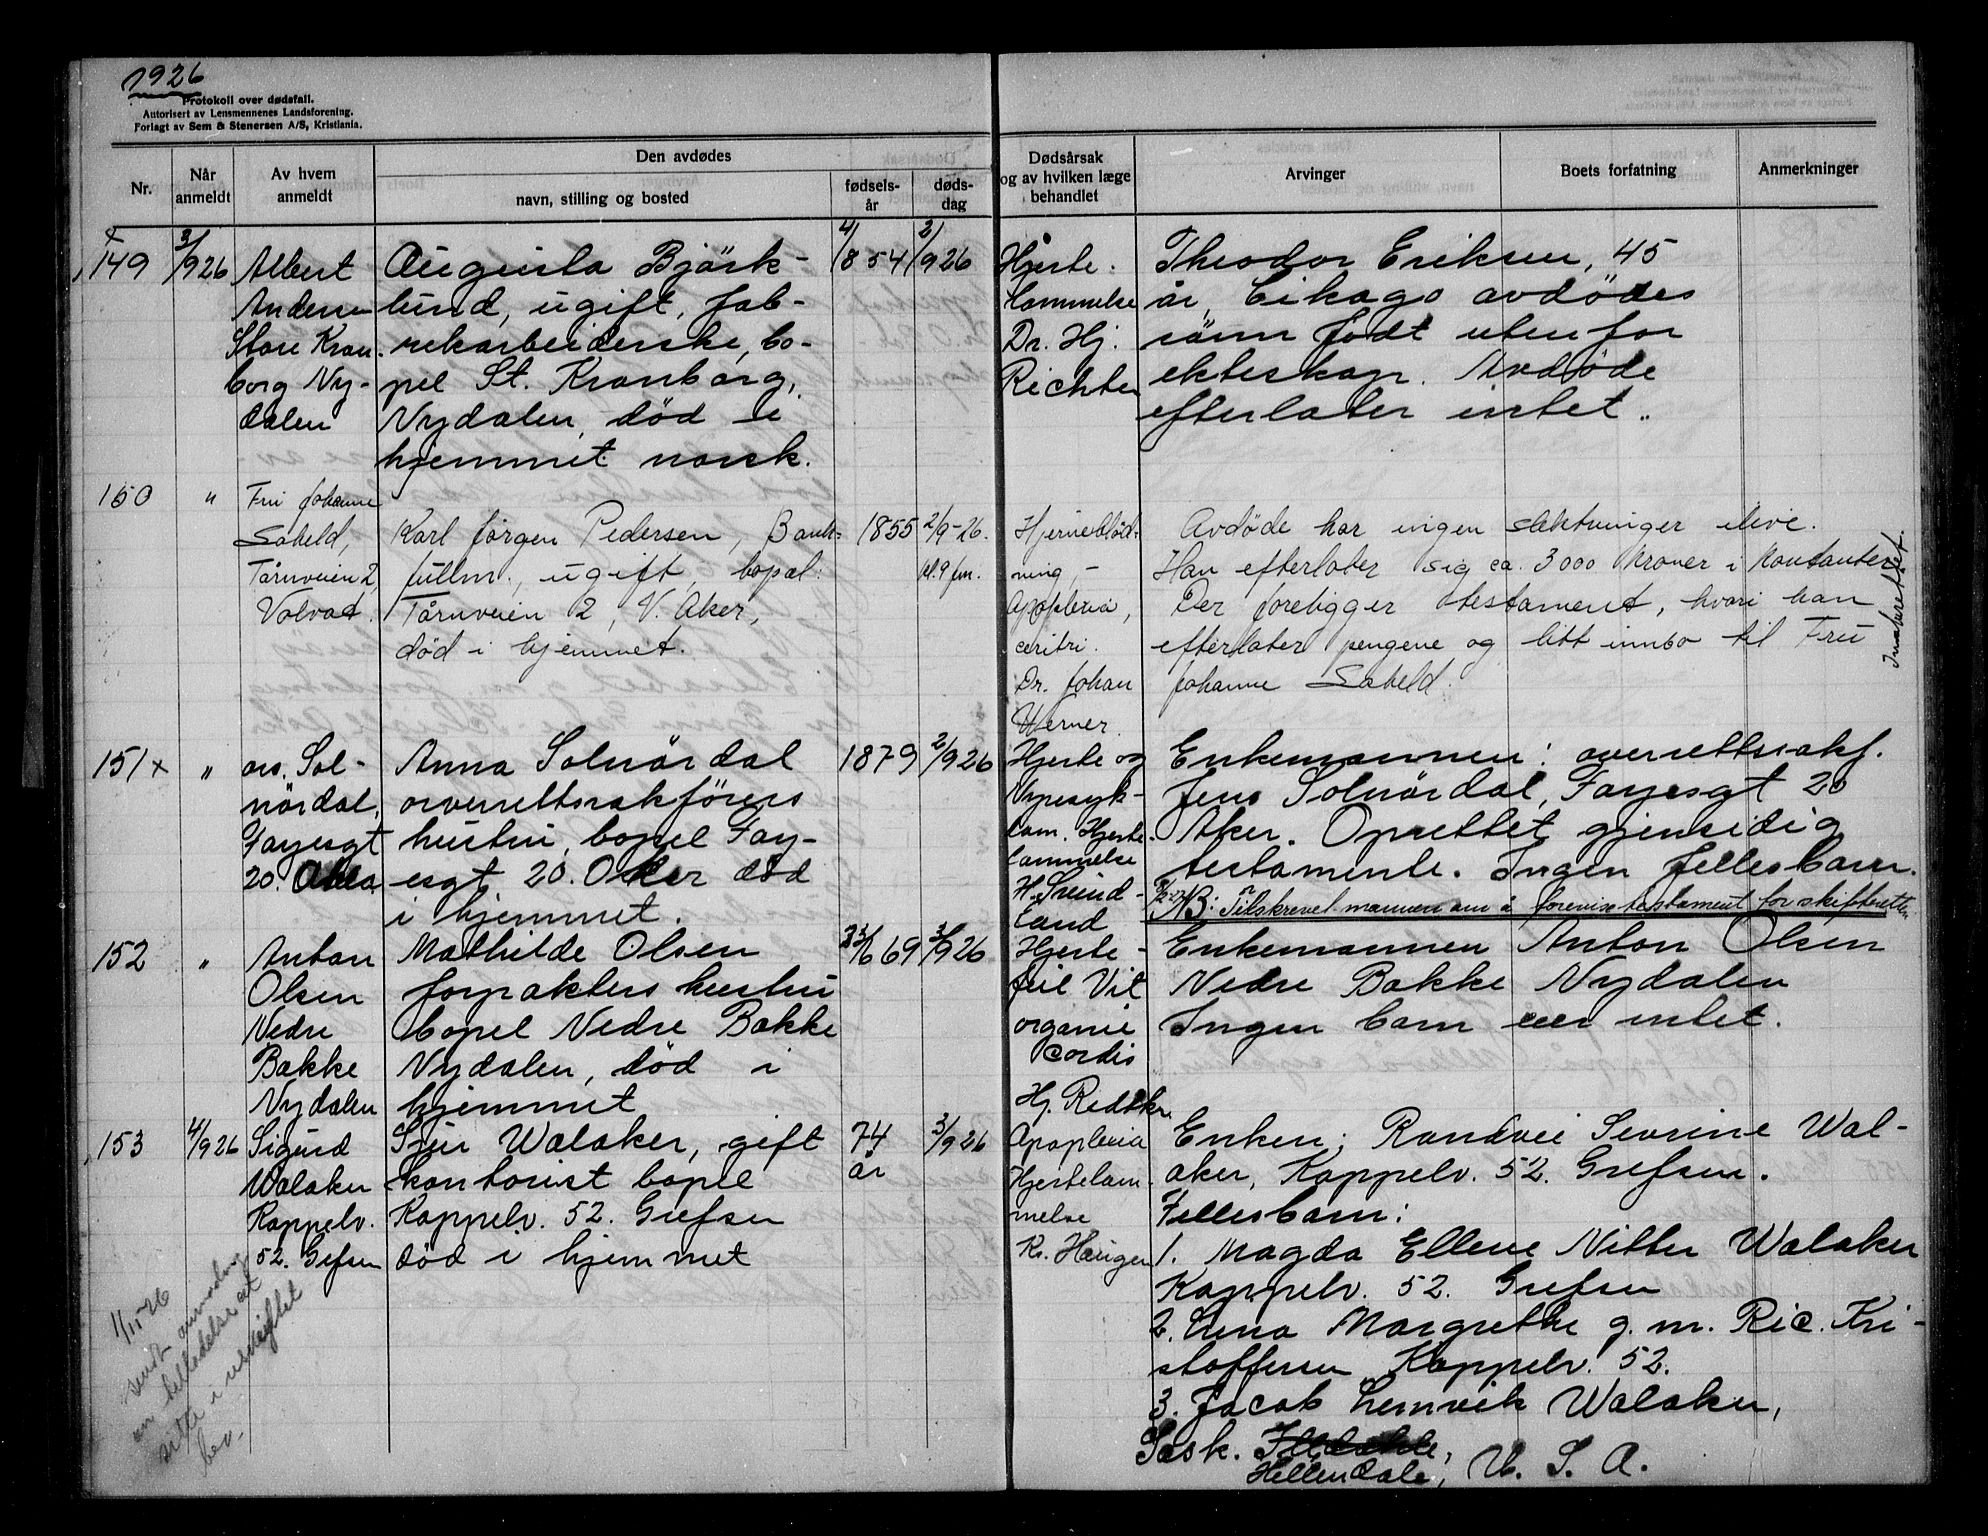 1926
Protokoll over dødsfall.
Autorisert av Lensmennenes Landsforening.
Forlagt av Sem & Stenersen A/S, Kristiania.
Nr.
Når anmeldt
Av hvem anmeldt
Den avdødes
navn, stilling og bosted
fødsels-år
døds-dag
Dødsårsak og av hvilken læge behandlet
Arvinger
Boets forfatning
Anmerkninger
149
3/9 26
Albert
Andersen
Store Kron-
borg Ny-
dalen
Augusta Bjôrk-
lund, ugift, fab-
rekarbeiderske, bo-
pel St. Kronborg,
Nydalen, död i
hjemmet norsk.
4/8 54
2/9 26
Hjerte.
Lammelse
Dr. Hj.
Richter
Theodor Eriksen, 45
år, Cikago avdödes
sönn födt utenfor
ekteskap. Avdöde
efterlater intet.
150
"
Fru Johanne
Sabeld,
Tårnveien 2,
Volvat.
Karl Jørgen Pedersen, Bank-
fullm., ugift, bopæl:
Tårnveien 2, V. Aker,
död i hjemmet.
1855
2/9-26.
kl. 9 fm.
Hjerneblød-
ning,-
Apoplexia,
Dr. Johan
Werner
Avdöde har ingen slektninger ilive.
Han efterlater sig ca. 3000 kroner i kontanter
Der foreligger testament, hvori han
efterlater pengene og litt innbo til Fru
Johanne Sabeld.
Innberettet.
151 x
"
ors. Sol-
nördal,
Fayesgt
20.
Anna Solnördal
orverettssakförers
hustru, bopel Fay-
esgt. 20. Aker död
i hjemmet.
1879
2/9 26
Hjerte og
Nyresyk-
dom. Hjerte-
lammelse
H. Svind-
land
Enkemannen: overettssakf.
Jens Solnördal, Fayesgt 20
Aker. Oprettet gjensidig
testamente. Ingen fellesbarn.
NB: Tilskrevet mannen om å forevise testament for skifteretten
152
"
Anton
Olsen
Nedre
Bakke
Nydalen
Mathilde Olsen
forpakters hustru
bopel Nedre Bakke
Nydalen, död i
hjemmet
23/6 69
3/9 26
Hjerte-
feil Vit
organic
cordis
Enkemannen Anton Olsen
Nedre Bakke Nydalen
Ingen barn eier intet.
153
4/9 26
Sigurd
Walaker
Kappelv.
52. Grefsen
Sjur Walaker, gift
kontorist bopel
Kappelv. 52. Grefsen
död i hjemmet
74
år
3/9 26
Apoplexia
Hjertelam-
melse
Kr. Haugen
Enken: Randvei Sevrine Wal-
aker, Kappelv. 52. Grefsen.
Fellesbarn:
1. Magda Ellene Nitter Walaker
Kappelv. 52. Grefsen
2. Lena Margrethe g. m. Ric. Kri-
stoffersen Kappelv. 52.
3. Jacob Lemvik Walaker,
Sask.
Hellendale, U. S. A.
1/11-26
sendt anmodning
om tilladelse at
sitte i uskiftet
bo.